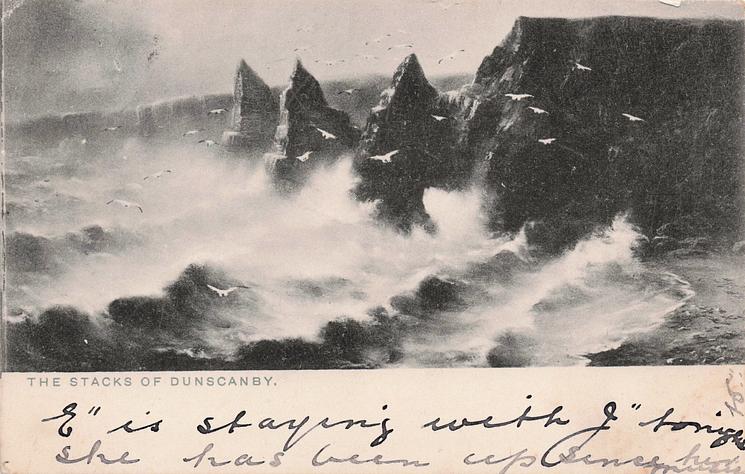 THE STACKS OF DUNSCANBY.
E" is staying with J" tonight
she has been up since her